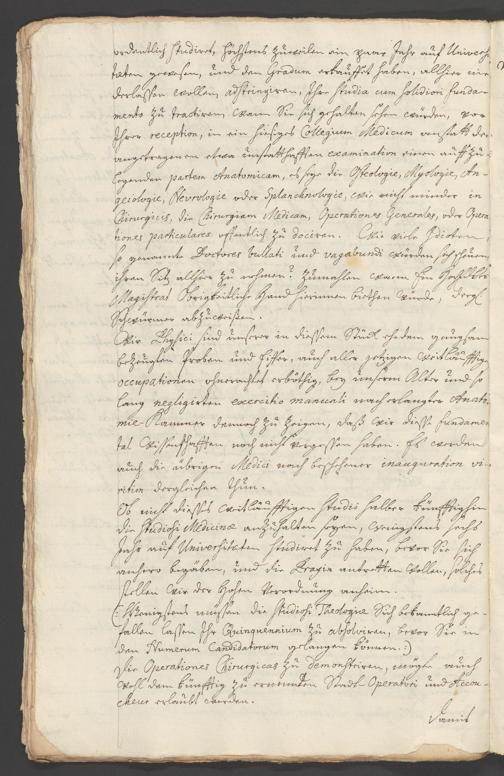 ordentlich studiret, höchstens zuweilen ein paar Jahr auf Univers-
täten gewesen, und den Gradum erkauffet haben, allhier nie-
derlassen wollen, adstringiren, Ihre Studia cum solidiori funda-
mento zu tractiren, wann Sie gehalten seyn würden, vor
Ihrer reception, in ein hiesiges Collegium Medicum anstatt der
angetragenen etwa unstatthafften examination einen auffzu-
legenden partem Anatomicam, es seye die Osteologie, Myologie, An-
geiologie, Nevrologie oder Splanchnologie, wie nicht minder in
Chirurgicis, die Chirurgiam Medicam, Operationes Generales, oder Opera-
tiones particulares öffentlich zu dociren. Wie viele Idioten,
so genannte Doctores bullati und vagabundi würden sich scheuen
ihren Sitz allhier zu nehmen? zumahlen wann Ein Hochlöbl.
Magistrat Obrigkeitliche Hand hierinnen biethen würde, dergl.
Schwürmer abzuweisen.
Wir Physici sind unserer in diesem Stück ehedem gnugsam
bezeugten Proben und Eifer, auch aller jetzigen weitläufftigen
occupationen ohnerachtet erböthig, bey unserm Alter und so
lang negligirten exercitio manuali nach erlangter Anato-
mie Kammer dennoch zu zeigen, daß wir diese fundamen-
tal Wissenschafften noch nicht vergessen haben. Es werden
auch die übrigen Medici nach beschehener inauguration vi-
ritim dergleichen thun.
Ob nicht dieses weitläufftigen Studii halber künfftighin
die Studiosi Medicinae anzuhalten seyen, wenigstens sechs
Jahr auf Universitäten studiret zu haben, bevor Sie sich
anhero begeben, und die Praxin antretten wollen, solches
stellen wir der hohen Verordnung anheim.
(:Wenigstens müssen die Studiosi Theologiae Sich bekanntlich ge-
fallen lassen Ihr Quinquennium zu absolviren, bevor Sie in
den Numerum Candidatorum gelangen können.:)
Die Operationes Chirurgicas zu demonstriren, möge auch
wohl dem künfftig zu ernennenden Stadt-Operatori und Accou-
cheur erlaubt werden.
Damit